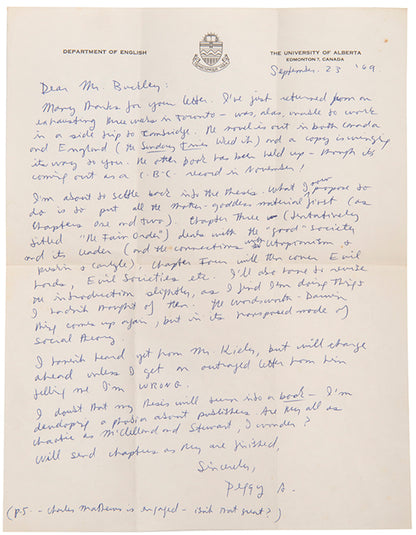 DEPARTMENT OF ENGLISH
THE UNIVERSITY OF ALBERTA
EDMONTON 7, CANADA
September 23 '69
Dear Mr. Buckley:
Many thanks for your letter. I've just returned from an
exhausting three weeks in Toronto – was, alas, unable to work
in a side trip to Cambridge. The novel is out in both Canada
and England (the Sunday Times liked it) and a copy is winging
its way to you. The other book has been held up – though its
coming out as a C.B.C. record in November!
I'm about to settle back into the thesis. What I now propose to
do is to put all the mother-goddess material first (as
Chapters one and two). Chapter Three – (tentatively
titled "The Fair Order") deals with the "good" society
and its leader (and the connections with Utopianism &
Ruskin & Carlyle), Chapter Four will then cover Evil
Lords, Evil Societies etc. I'll also have to revise
the introduction slightly, as I find I'm doing things
I hadn't thought of then. The Wordsworth – Darwin
thing comes up again, but in its transposed mode of
Social theory.
I haven't heard yet from Mr. Kiely, but will charge
ahead unless I get an outraged letter from him
telling me I'm WRONG.
I doubt that my thesis will turn into a book – I'm
developing a phobia about publishers. Are they all as
chaotic as McClelland and Stewart, I wonder?
Will send chapters as they are finished,
Sincerely,
Peggy A.
(P.S. – Charles Mathews is engaged – isn't that great?)